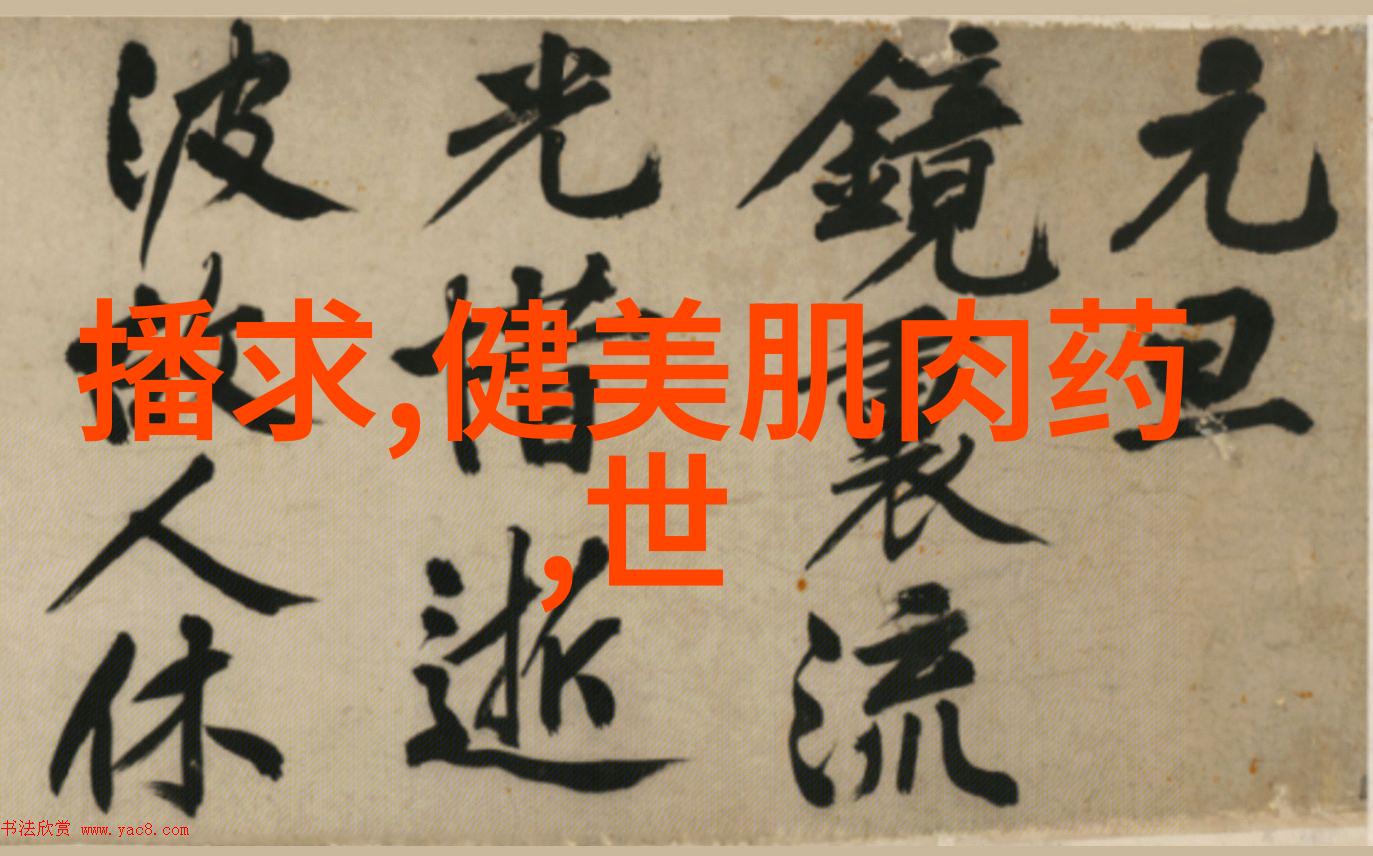 元旦
鏡裏流
光惜逝
波故人休
播求,健美肌肉药
,世
书法欣赏 www.yac8.com